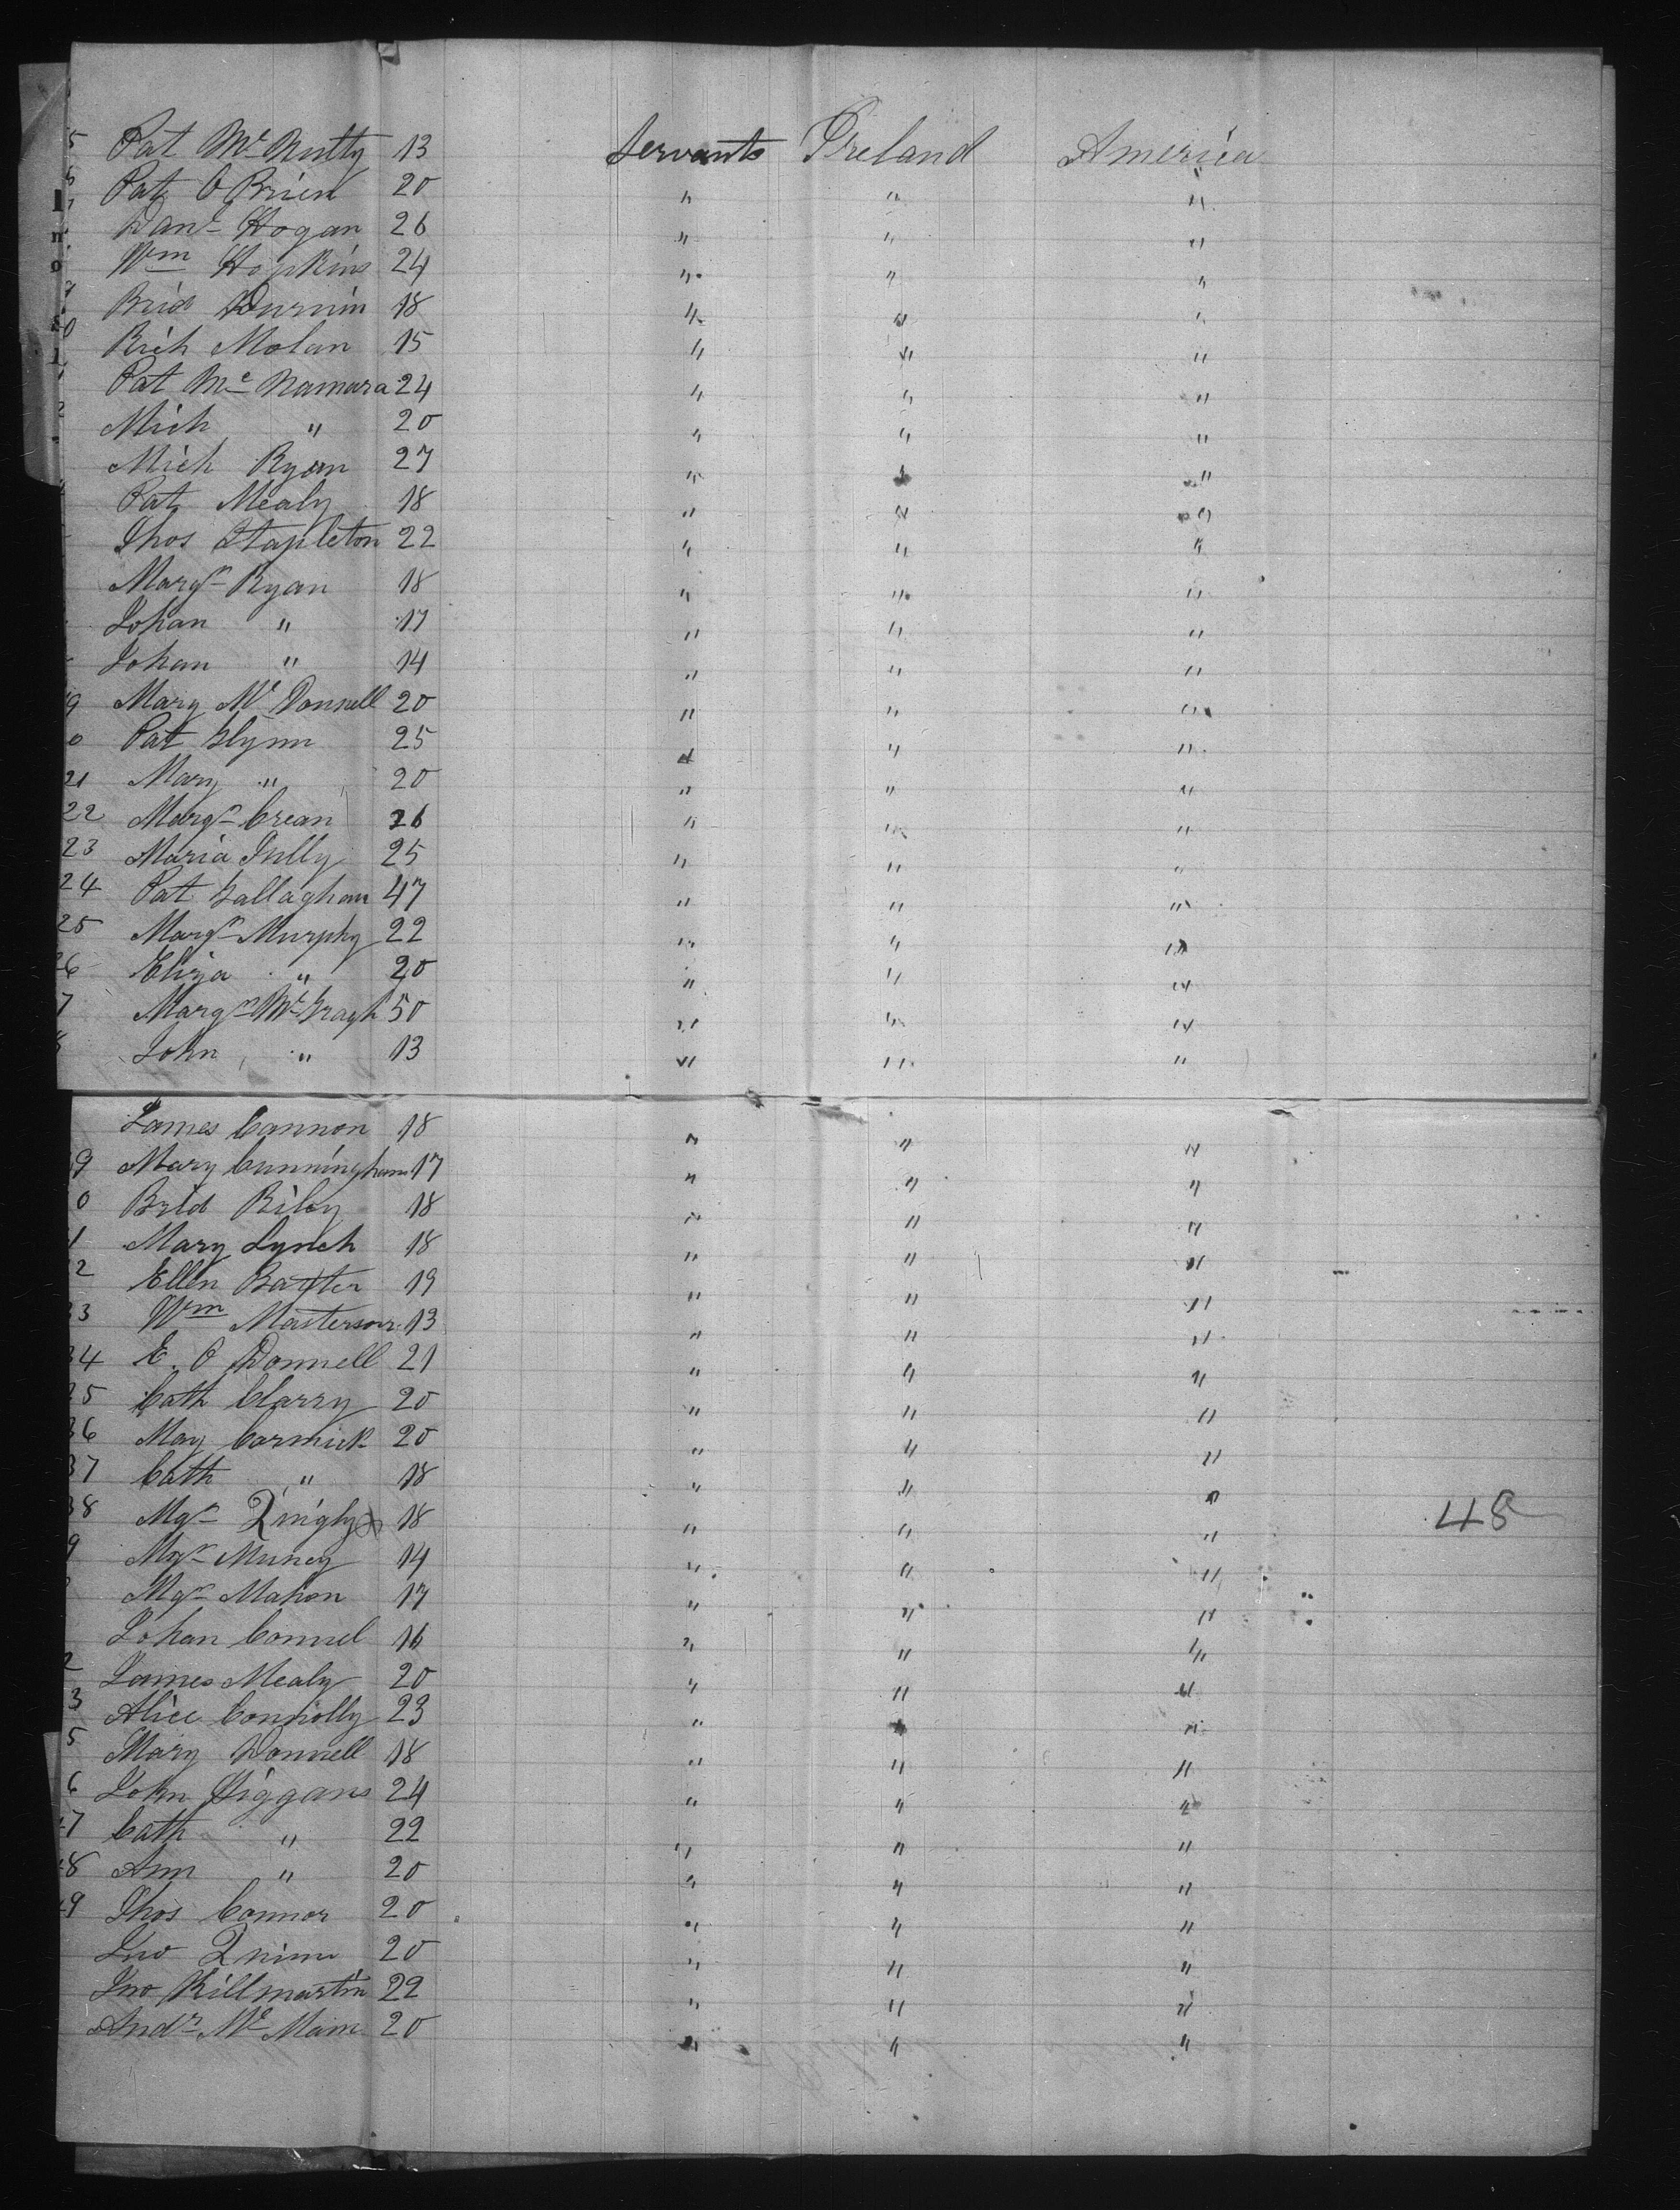 5 Pat Mc Nulty 13 Servants Ireland America
6 Pat O Brien 20 " " "
Danl Hogan 26 " " "
Wm Hopkins 24 " " "
Brid Durnin 18 " " "
0 Rich Molan 15 " " "
Pat Mc Namara 24 " " "
2 Mich " 20 " " "
Mich Ryan 27 " " "
Pat Mealy 18 " " "
Thos Stapleton 22 " " "
Margt Ryan 18 " " "
Johan " 17 " " "
Johan " 14 " " "
19 Mary Mc Donnell 20 " " "
0 Pat Glynn 25 " " "
21 Mary " 20 " " "
22 Margt Crean 26 " " "
23 Maria Tully 25 " " "
24 Pat Gallaghan 47 " " "
25 Margt Murphy 22 " " "
26 Eliza " 20 " " "
7 Margt McGragh 50 " " "
John " 13 " " "
James Cannon 18 " " "
9 Mary Cunningham 17 " " "
0 Brid Riley 18 " " "
1 Mary Lynch 18 " " "
2 Ellen Baxter 19 " " "
33 Wm Masterson 13 " " "
34 E. O Donnell 21 " " "
35 Cath Clarry 20 " " "
36 May Cormick 20 " " "
37 Cath " 18 " " "
38 Mgt Quigly 18 " " " 48
9 Mgt Muney 14 " " "
Mgt Mahon 17 " " "
Johan Connel 16 " " "
2 James Mealy 20 " " "
3 Alice Connolly 23 " " "
5 Mary Donnell 18 " " "
6 John Higgans 24 " " "
47 Cath " 22 " " "
48 Ann " 20 " " "
49 Thos Connor 20 " " "
Jno Quinn 20 " " "
Jno Killmartin 22 " " "
Andr Mc Mam 20 " " "